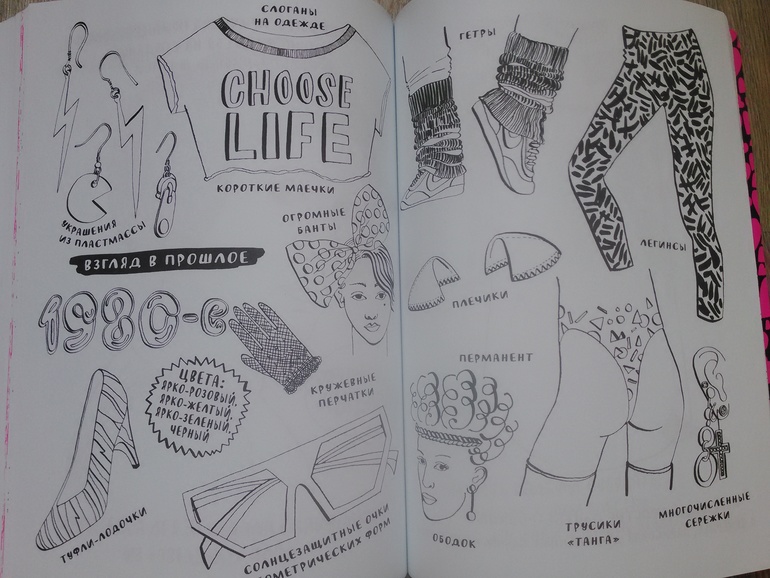 СЛОГАНЫ
НА ОДЕЖДЕ
CHOOSE
LIFE
КОРОТКИЕ МАЕЧКИ
УКРАШЕНИЯ
ИЗ ПЛАСТМАССЫ
ОГРОМНЫЕ
БАНТЫ
ВЗГЛЯД В ПРОШЛОЕ
1980-е
ЦВЕТА:
ЯРКО-РОЗОВЫЙ,
ЯРКО-ЖЁЛТЫЙ,
ЯРКО-ЗЕЛЕНЫЙ,
ЧЕРНЫЙ
КРУЖЕВНЫЕ
ПЕРЧАТКИ
ТУФЛИ-ЛОДОЧКИ
СОЛНЦЕЗАЩИТНЫЕ ОЧКИ
ФОРМ
ГЕТРЫ
ЛЕГИНСЫ
ПЛЕЧИКИ
ПЕРМАНЕНТ
ОБОДОК
ТРУСИКИ
«ТАНГА»
МНОГОЧИСЛЕННЫЕ
СЕРЕЖКИ